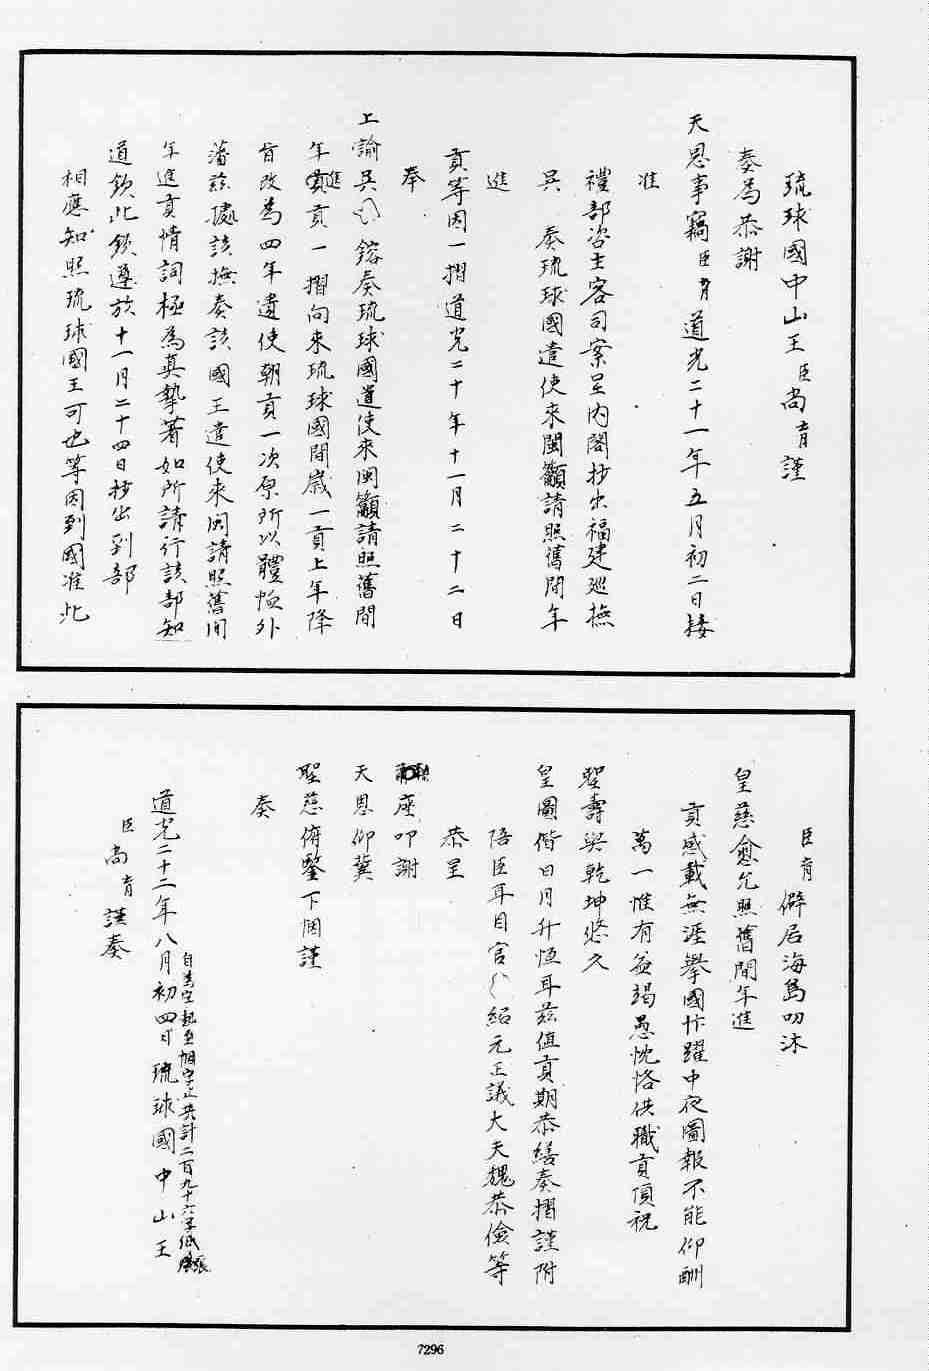 琉球國中山王臣尚育謹
奏為恭謝
天恩事竊臣育道光二十一年五月初二日接
准
禮部咨主客司案呈內閣抄出福建巡撫
吳 奏琉球國遣使來閩籲請照舊間年
進
貢等因一摺道光二十年十一月二十二日
奉
上諭吳 鎔奏琉球國遣使來閩籲請照舊間
年進貢一摺向來琉球國間歲一貢上年降
旨改為四年遣使朝貢一次原所以體恤外
藩茲據該撫奏該國王遣使來閩請照舊間
年進貢情詞極為真摯著如所請行該部知
道欽此欽遵於十一月二十四日抄出到部
相應知照琉球國王可也等因到國准此
臣育僻居海島叨沐
皇慈愈允照舊間年進
貢感載無涯舉國忭躍中夜圖報不能仰酬
萬一惟有益竭愚忱恪供職貢頂祝
聖壽與乾坤悠久
皇圖偕日月升恒耳茲值貢期恭繕奏摺謹附
陪臣耳目官 紹元正議大夫魏恭儉等
恭呈
座叩謝
天恩仰冀
聖慈俯鑒下悃謹
奏
自琉字起至悃字止共計二百九十六字紙 張
道光二十二年八月初四日琉球國中山王
臣尚育謹奏
7296